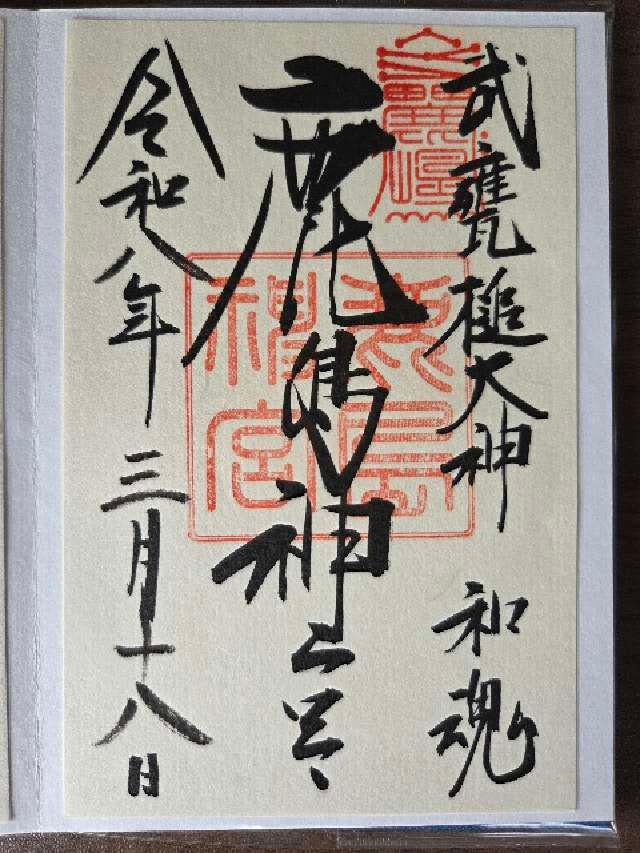 武甕槌大神 和魂
鹿島神宮
鹿島神宮
令和八年 三月十八日